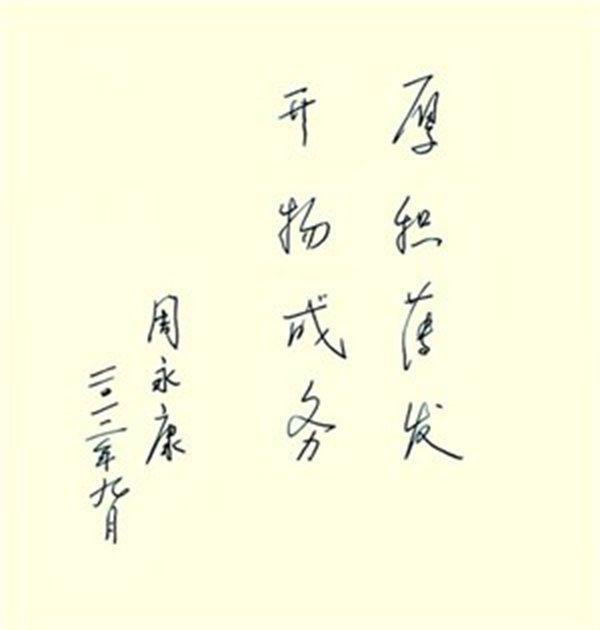 厚积薄发
开物成务
周永康
二〇一二年九月